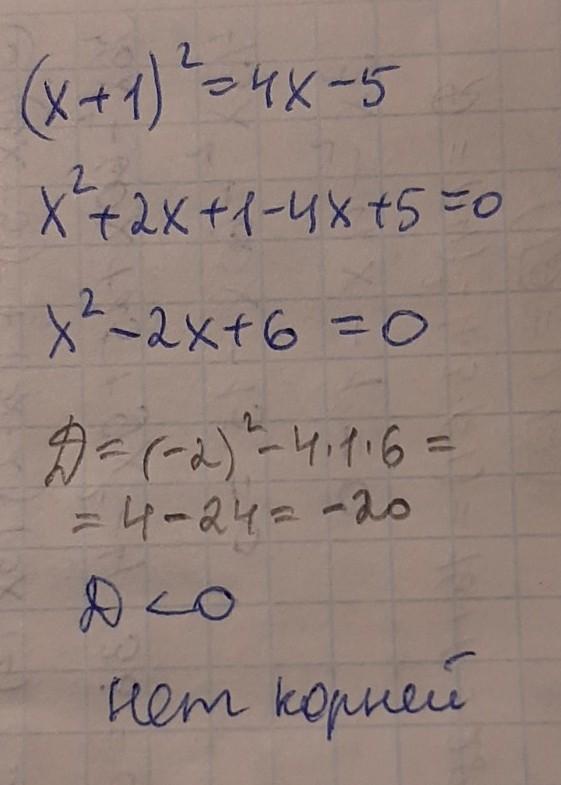 (x+1)²=4x-5
x²+2x+1-4x+5=0
x²-2x+6=0
D=(-2)²-4·1·6=
=4-24=-20
D<0
нет корней